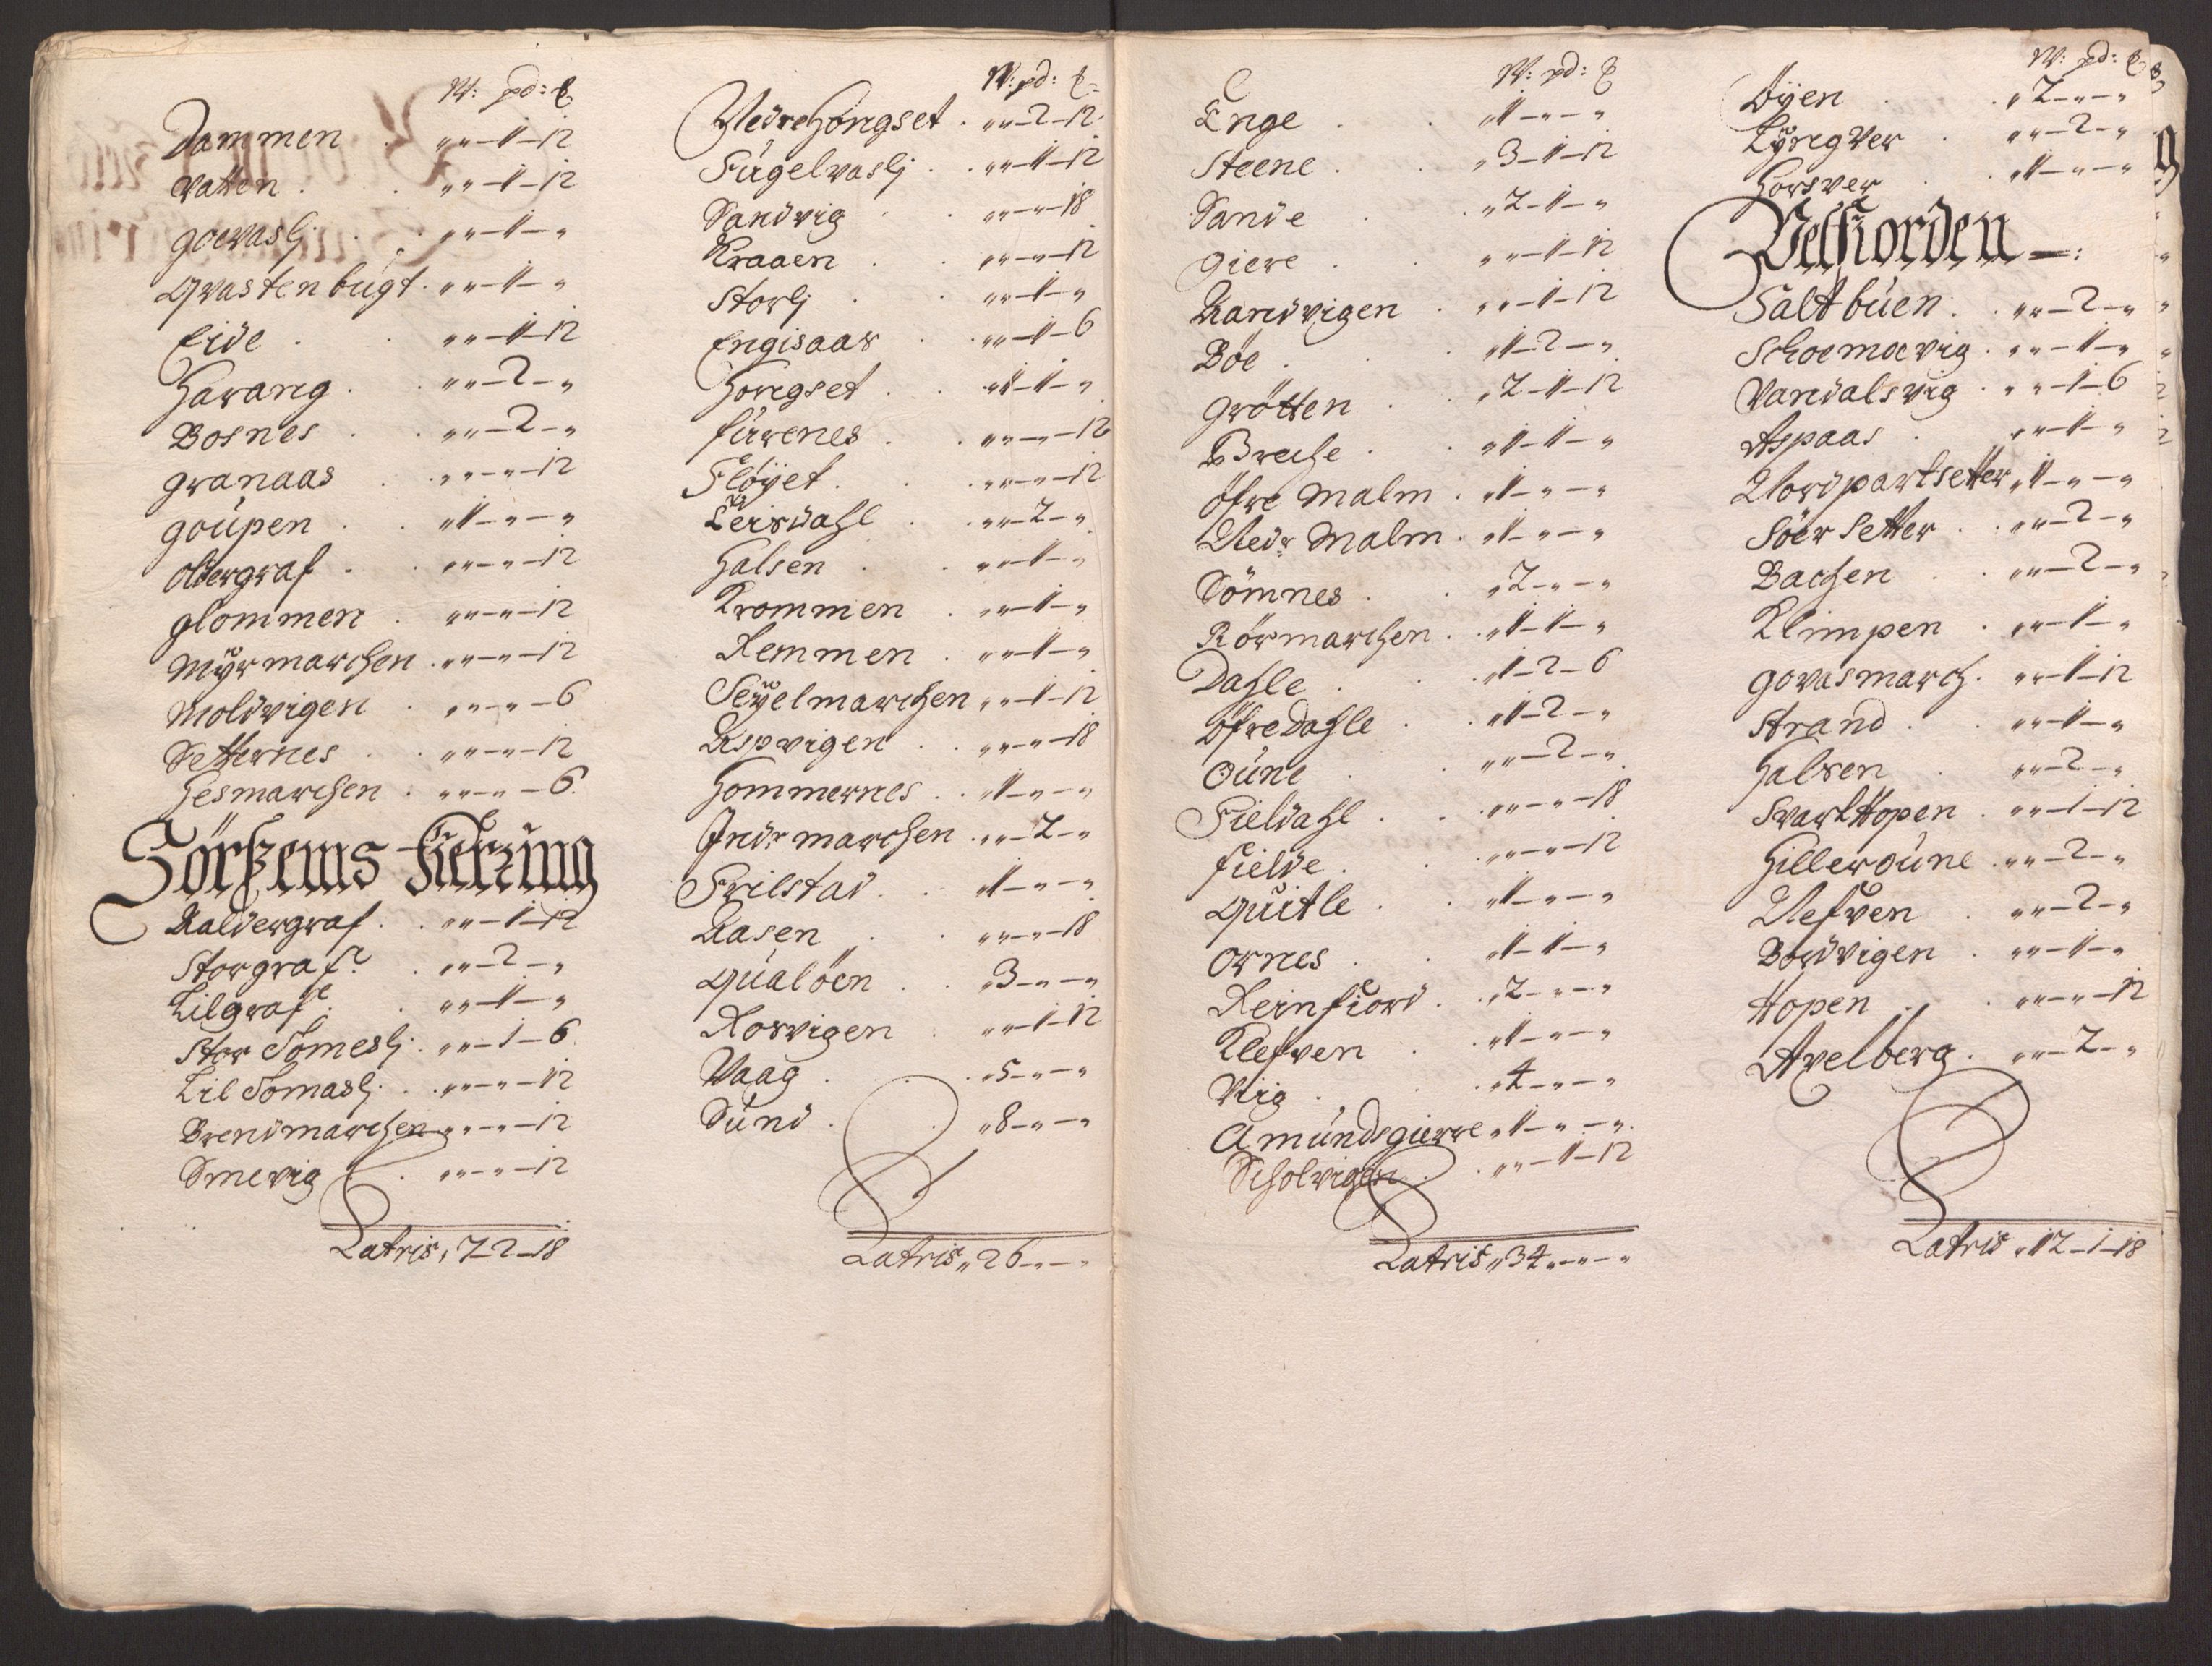 W: pd: ℔
Dammen . „ „ – 1 – 12
Vatten . . „ „ – 1 – 12
goevaslj . . „ „ – 1 – „
Qvastenbúgt . „ „ – 1 – „
Eide . . „ „ – 1 – 12
Harang . . „ „ – 2 – „
Bosnes . . „ „ – 2 – „
granaas . „ „ – „ – 12
goúpen . . „ 1 – „ – „
oldergraf . „ „ – „ – 12
glommen . „ „ – „ – 12
Myrmarchen . „ „ – „ – 12
Moldvigen . „ „ – „ – 6
Setternes . . „ „ – „ – 12
Hesmarchen . „ „ – „ – 6
Sörhems Fierring
Kaldergraf . . „ „ – 1 – 12
Storgraf . . „ „ – 2 – „
Lilgraf . . „ „ – 1 – „
Stor Tomeslj . „ „ – 1 – 6
Lil Tomaslj . . „ „ – „ – 12
Brendmarchen „ „ – „ – 12
Smevig . . „ „ – „ – 12
Latris „ 7 – 2 – 18
W: pd: ℔
NedreHongset . „ „ – 2 – 12
Fúgelvaslj . „ „ – 1 – 12
Sandvig . . „ „ – „ – 18
Kraaen . . „ „ – „ – 12
Storlj . . „ „ – 1 – „
Engisaas . . „ „ – 1 – 6
Hongset . . „ 1 – 1 – „
fúrenes . . „ „ – „ – 12
Flöyet . . „ „ – „ – 12
Leirdahl . . „ „ – 2 – „
Halsen . . „ „ – 1 – „
Krommen . „ „ – 1 – „
Remmen . „ „ – 1 – „
Seyelmarchen „ „ – 1 – 12
Aspvigen . . „ „ – „ – 18
Hommernes . . „ 1 – „ – „
Indr marchen . „ „ – 2 – „
Frilstad . . „ 1 – „ – „
Aasen . . „ „ – „ – 18
Qúalöen . . „ 3 – „ – „
Rosvigen . „ „ – 1 – 12
Vaag . . . „ 5 – „ – „
Súnd . . „ 8 – „ – „
Latris „ 26 – „ – „
W: pd: ℔
Enge . . „ 1 – „ – „
Steene . . „ 3 – 1 – 12
Sande . . „ 2 – 1 – „
giere . . „ „ – 1 – 12
Randvigen . „ „ – 1 – 12
Böe . . „ 1 – 2 – „
grötten . . „ 2 – 1 – 12
Breche . . „ 1 – 1 – „
öfre Malm . „ 1 – „ – „
Nedr Malm . „ 1 – „ – „
Sömnes . . „ 2 – „ – „
Rörmarchen . . „ 1 – 1 – „
Dahle . . „ 1 – 2 – 6
öfre Dahle . . „ 1 – 2 – „
Oúne . . „ „ – 2 – „
Fieldahl . . „ „ – „ – 18
fielde . . „ „ – „ – 12
Qúitle . . „ 1 – „ – „
Ornes . . „ 1 – 1 – „
Reinfiord . . „ 2 – „ – „
Klefven . . „ 1 – „ – „
Viig . . „ 4 – „ – „
Amúndsgierre „ 1 – „ – „
Scholvigen . . „ „ – 1 – 12
Latris „ 34 „ – „ – „
W: pd: ℔
Öyen . . „ 2 – „ – „
Lyngver . „ „ – 2 – „
Horsver . „ 1 – „ – „
Velfiorden –:
Saltbúen . . „ „ – 2 – „
Schoemoevig . „ „ – 1 – „
Vandalsvig . „ „ – 1 – 6
Aspaas . „ „ – 1 – „
Nordpartsetter „ 1 – „ – „
Söer Setter . . „ „ – 2 – „
Bachen . . „ „ – 2 – „
Klimpen . „ „ – 1 – „
govasmarch . „ „ – 1 – 12
Strand . . „ „ – 1 – „
Halsen . „ „ – 2 – „
Svarthopen . „ „ – 1 – 12
Hilleroúne . „ „ – 2 – „
Nefven . „ „ – 2 – „
Bordvigen . „ „ – 1 – „
Hopen . . „ „ – „ – 12
Axelberg . „ „ – 2 – „
Latris „ 12 – 1 – 18